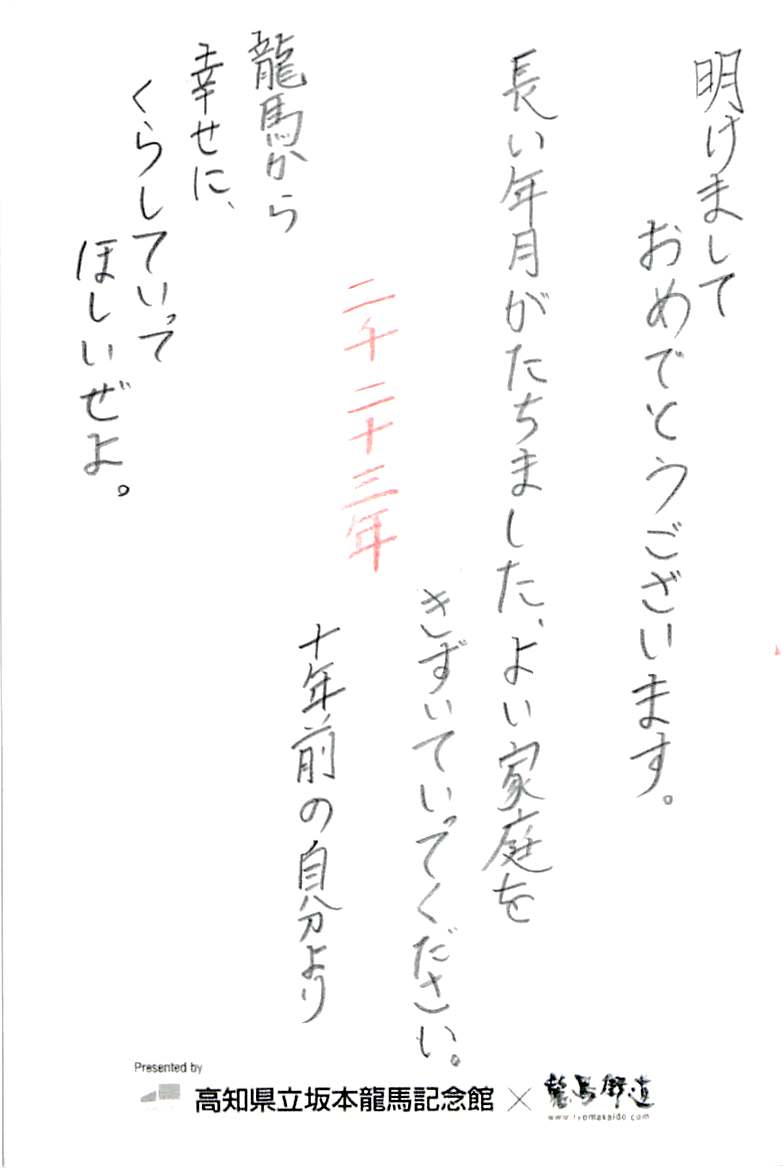 明けまして
おめでとうございます。
長い年月がたちました、よい家庭を
きずいていってください。
二千二十三年
十年前の自分より
龍馬から
幸せに、
くらしていって
ほしいぜよ。
Presented by
高知県立坂本龍馬記念館 × 龍馬街道
www.ryomakaido.com